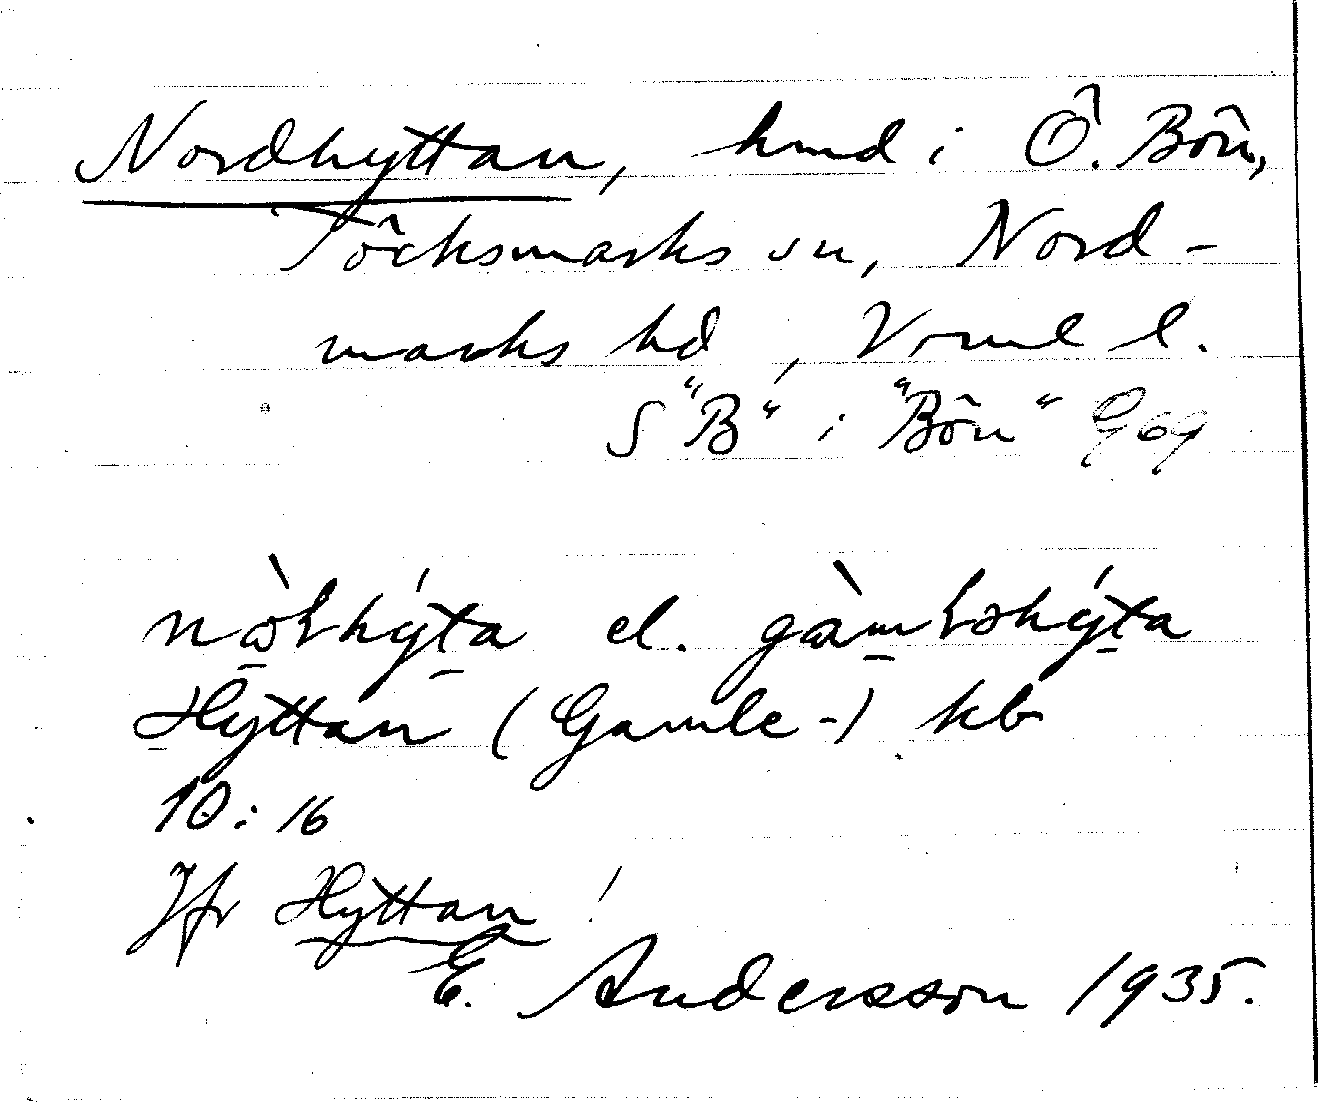 Nordhyttan, hmd i Ö. Bön,
Töcksmarks sn, Nord-
marks hd, Vrml l.
S "B" i "Bön" G 69
nɷ̀ƚhýt̲a el. gàm̲ƚəhýt̲a
Hyttan (Gamle-) kb
10:16
Jfr Hyttan!
E. Andersson 1935.